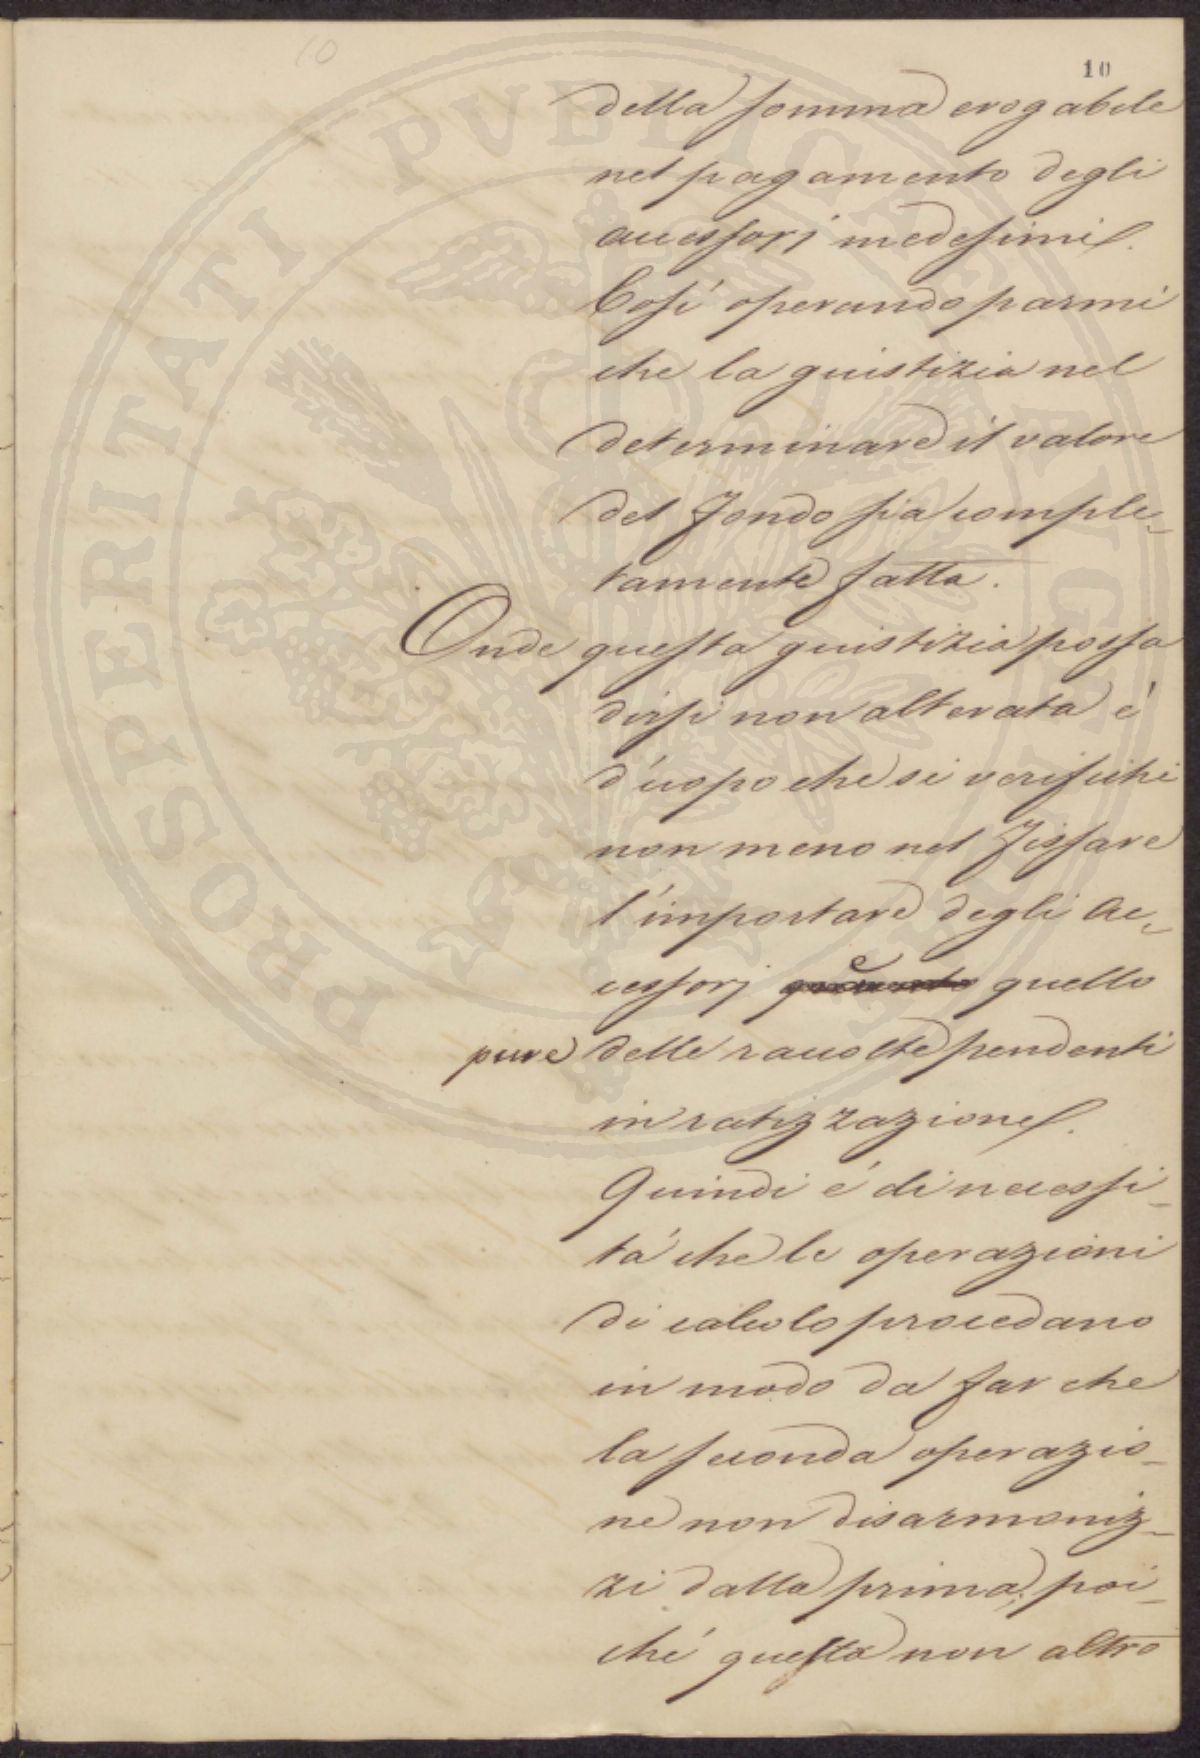 10
10
della somma erogabile
nel pagamento degli
accessorj medesimi.
Cosí operando parmi
che la guistizia nel
determinare il valore
del fondo sia comple-
tamente fatta.
Onde questa guistizia possa
dirsi non alterata é
d'uopo che si verifichi
non meno nel fissare
l'importare degli Ac-
cessorj e quello
pure delle raccolte pendenti
in ratizzazione.
Quindi é di necessi-
tá che le operazioni
di calcolo procedano
in modo da far che
la seconda operazio-
ne non disarmoniz-
zi dalla prima; poi-
ché questa non altro
PROSPERITATI PUBLICAE AUGENDAE